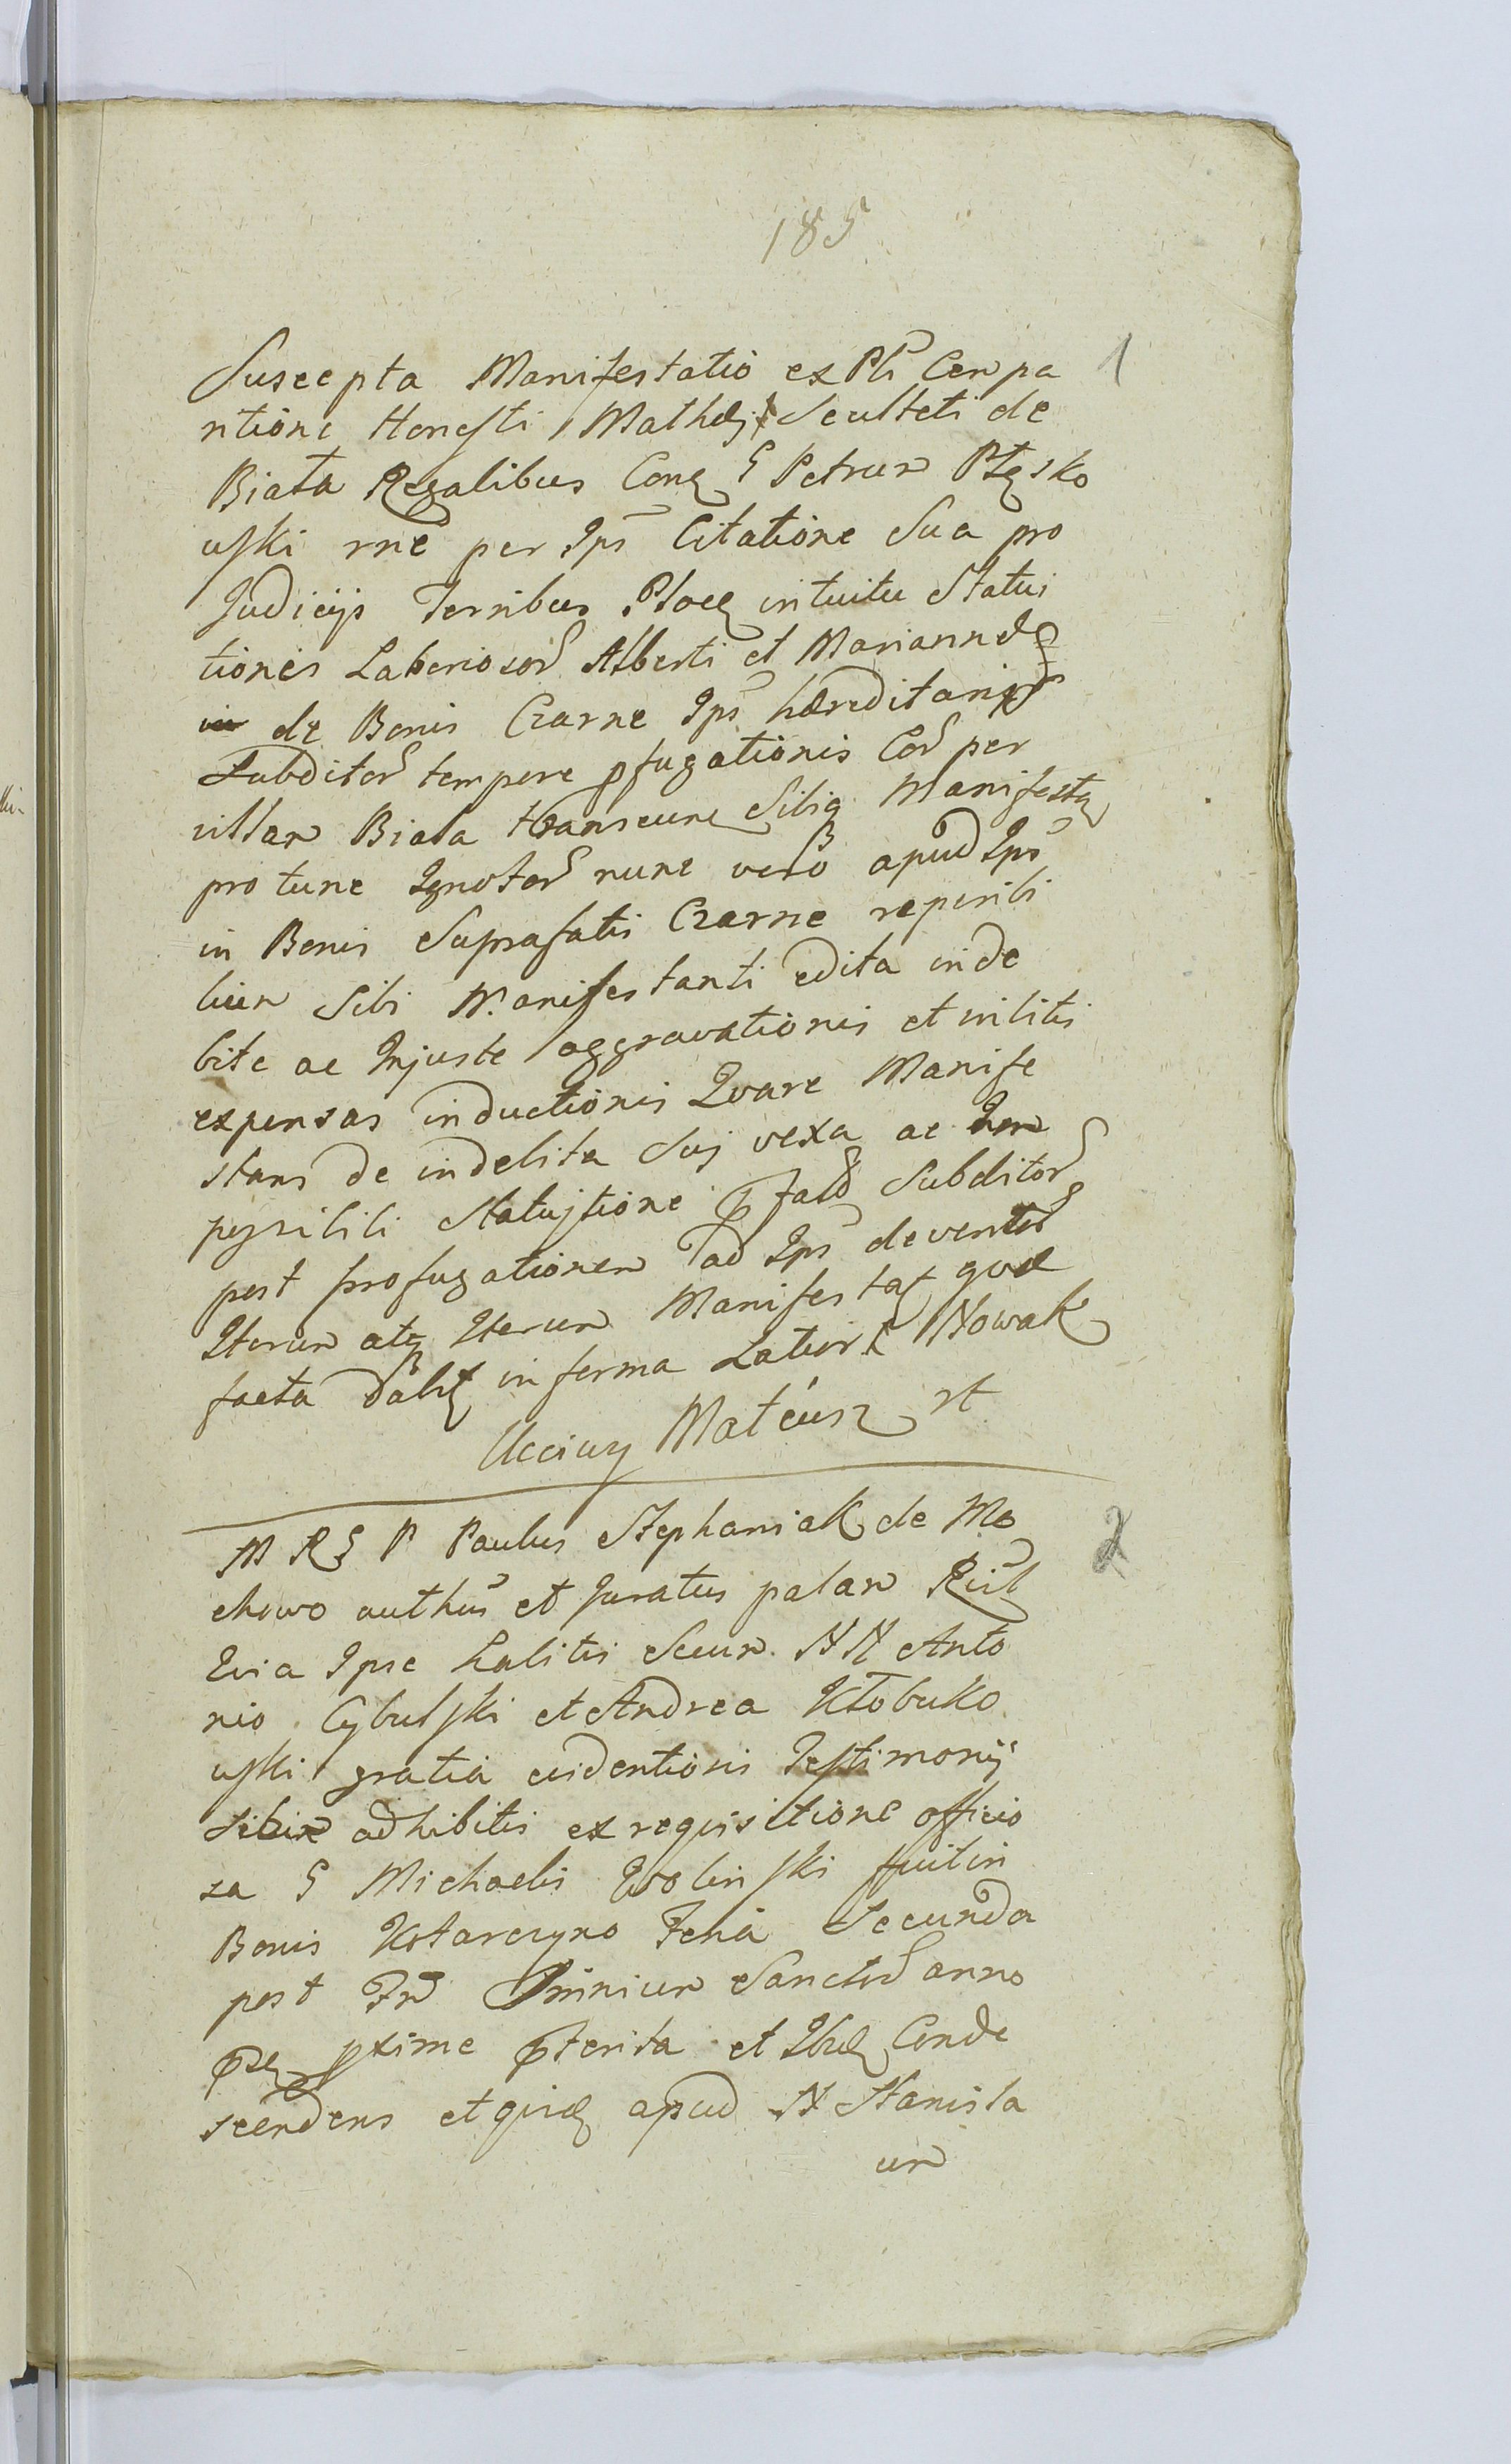 185
Suscepta Manifestatio ex Pli Compa 1
ritione Honesti Mathæi Sculteti de
Biała Regalibus Conq G Petrum Płęsko
wski rne per Ips Citatione Sua pro
Judicijs Terribus Ploc intuitu Statui
tionis Laboriosor Alberti et Mariannæ
de Bonis Czarne Ips hæreditarijs
Subditor tempore pfugationis Eor per
villam Biała transeun Sibiq Manifestq
pro tunc Ignotor nunc vero apud Ips
in Bonis Suprafatis Czarne reperibi
lium Sibi Manifestanti edita inde
bite ac Injuste aggravationis et in litis
expensas inductionis Quare Manife
stans de indebita Sui vexa ac Im
possibili Statujtione pfator Subditor
post profugationem ad Ips devento
Iterum atq Iterum Manifestat quæ
facta dabit in forma Latiori Nowak
Ucciwy Mateusz
M R G P Paulus Stephaniak de Mo 2
chowo authus et Juratus palam
Quia Ipse habitis Secum NN Anto
nio Cybulski et Andrea Kłobuko
wski gratia evidentioris Testimonij
sibi adhibitis ex requisitione officio
sa G Michaelis Wolinski fuit in
Bonis Kotarczyno Feria Secunda
post Fm Omnium Sanctor anno
pxime pterita et Ibid Conde
scendens et quid apud N Stanisla
um